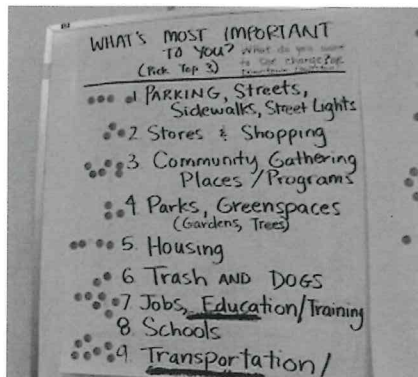 WHAT'S MOST IMPORTANT
TO YOU? What do you want
(Pick Top 3) to see change?
1 PARKING, Streets,
Sidewalks, Street Lights
2 Stores & Shopping
3. Community Gathering
Places / Programs
4 Parks, Greenspaces
(Gardens, Trees)
5. Housing
6 Trash AND DOGS
7. Jobs, Education/Training
8. Schools
9. Transportation/